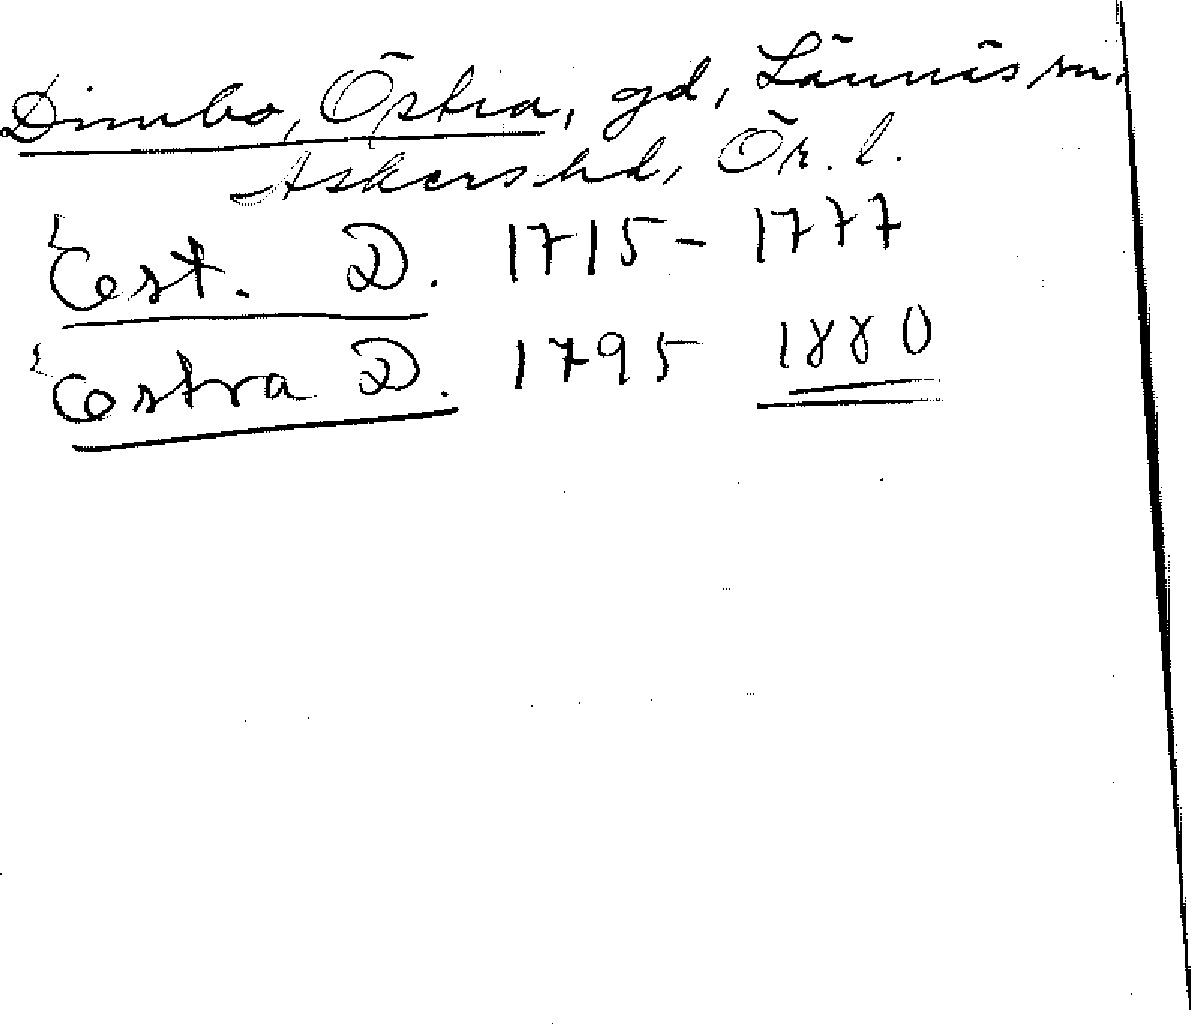 Dimbo, Östra, gd, Lännäs sn.
Askers hd, Ör. l.
Öst. D. 1715 - 1777
Östra D. 1795 1880